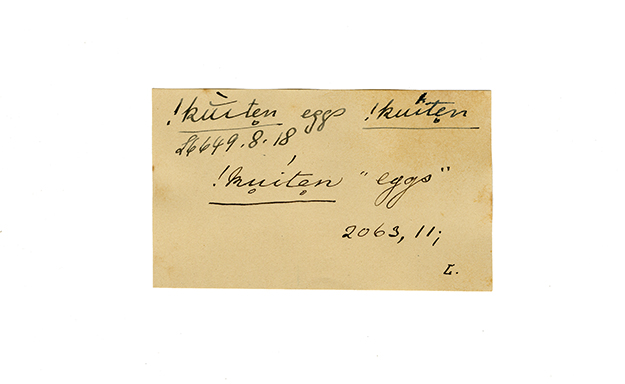 !kuïtẹn eggs !kuïtẹn
L6649.8.18
!kuítẹn "eggs"
2063, 11;
L.